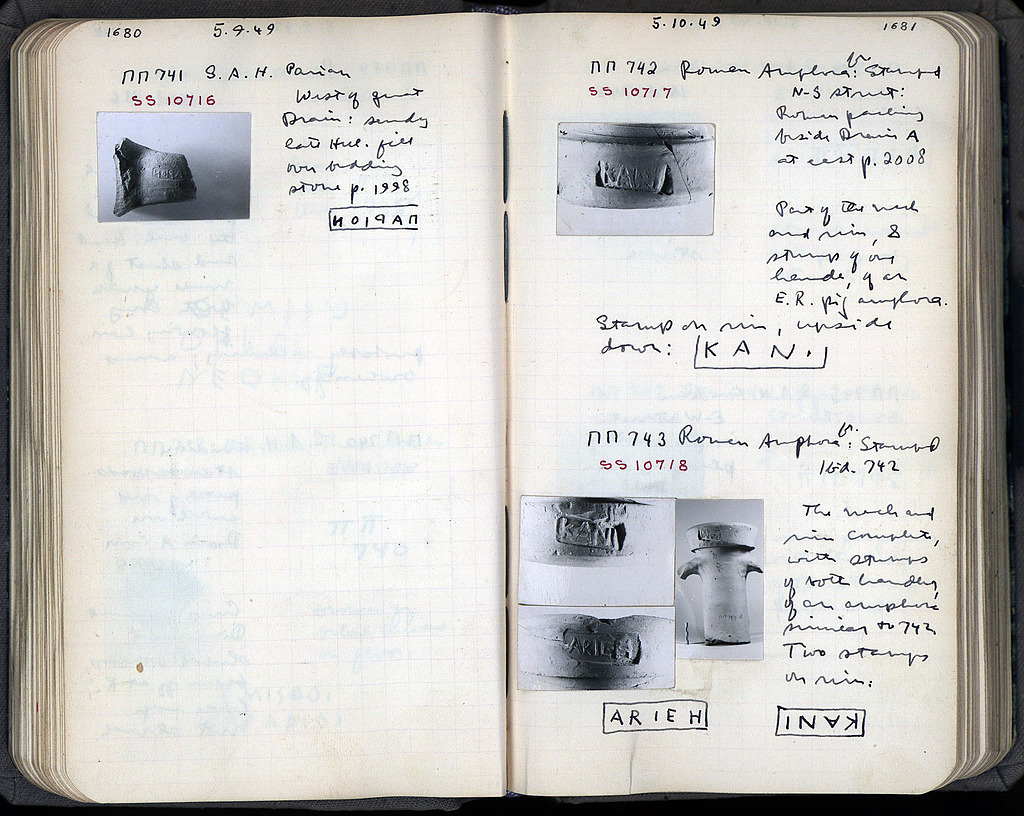 1680
5.9.49
ΠΠ 741 S.A.H. Parian
SS 10716
West of great
Drain: sandy
late Hel. fill
over bedding
stone p. 1998
ΠΑΡΙΟΝ
5.10.49
1681
ΠΠ 742 Roman Amphora: Stamped
SS 10717
N-S struct:
Roman packing
beside Drain A
at east p. 2008
KANI
Part of the neck
and rim, &
stump of one
handle, of an
E.R. pig amphora.
Stamp on rim, upside
down: KAN.
ΠΠ 743 Roman Amphora: Stamped
SS 10718
Ibid. 742
KANI
ARIEH
The neck and
rim complete,
with stumps
of both handles,
of an amphora
similar to 742
Two stamps
on rim:
ARIEH
KANI